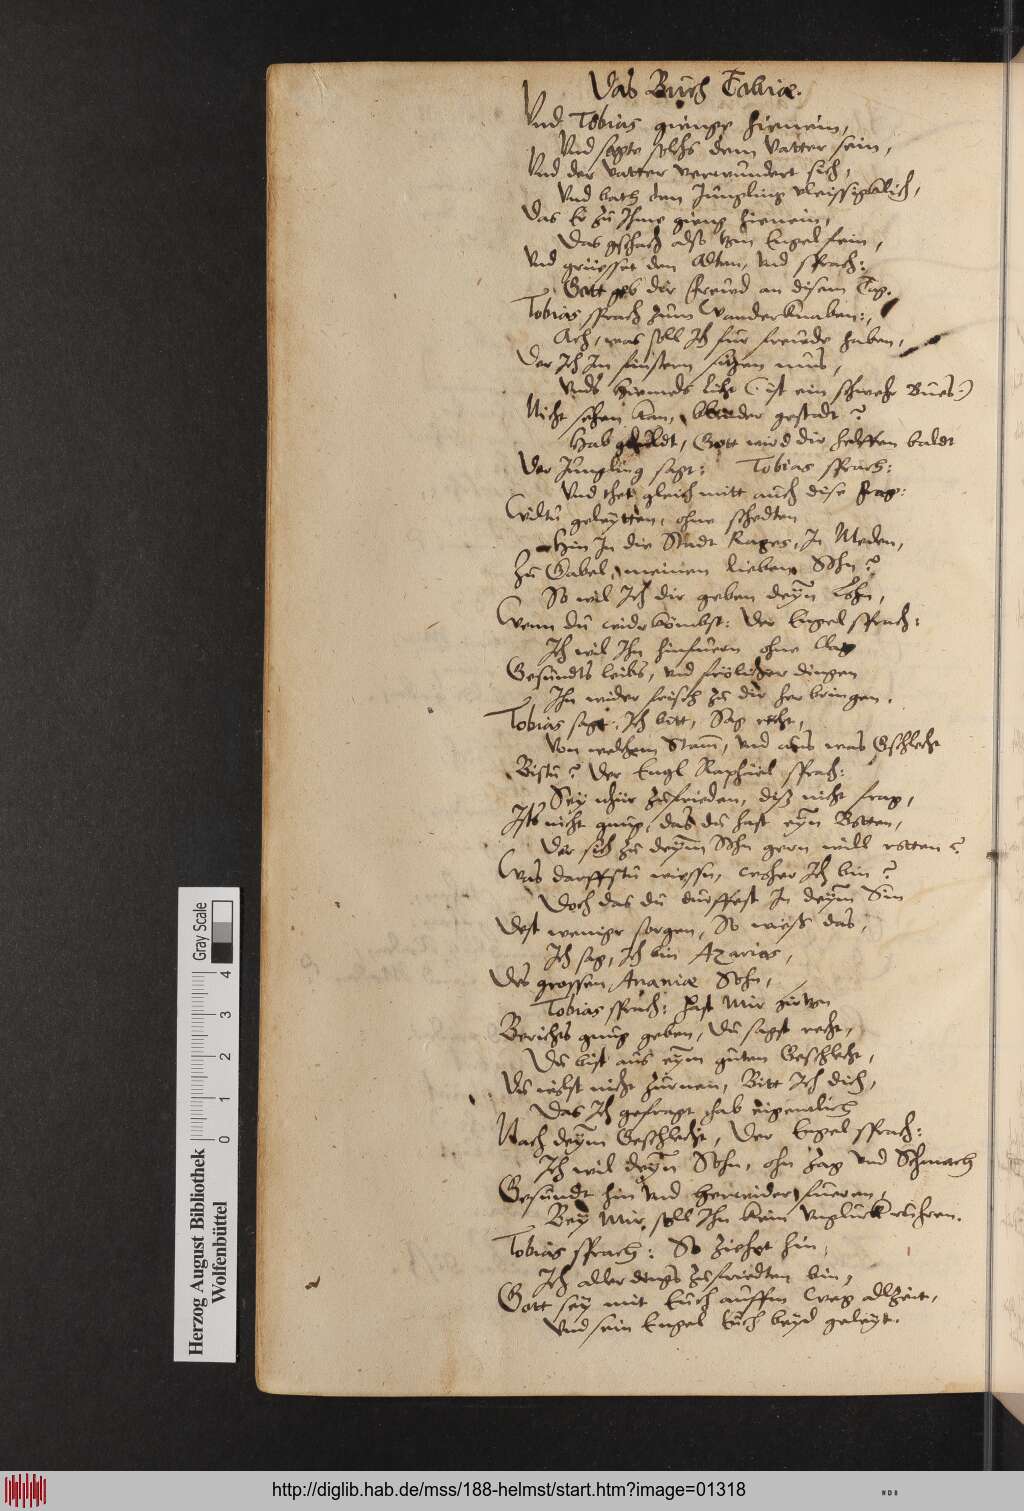 Das Buch Tobiæ.
Vnd Tobias gienge hienein,
Vnd sagte solchs dem Vatter sein,
Vnd der Vatter verwundert sich,
Vnd bath den Jüngling vleissigklich,
Das Er zu Jhme gieng hienein,
Das gschach also vom Engel fein,
Vnd grüesset den Alten, vnd sprach:
Gott geb dir freud an disem Tag.
Tobias sprach zum Wanderknaben:
Ach, was soll Jch für freude haben,
Der Jch Jm finstern sitzen mus,
Vnds himels liecht (ist ein schwehr Bues:)
Nicht sehen kan, gestadt?
Hab gedüldt, Gott wird dir helffen baldt
Der Jüngling sagt: Tobias sprach:
Vnd thet gleich mitt auch dise frag:
Wiltu geleytten, ohne schedten
Hin Jn die Stadt Rages, Jn Meden,
Zu Gabel, meinen lieben Sohn?
So wil Jch dir geben deyn Lohn,
Wenn du widr kömbst: Der Engel sprach:
Jch wil Jhn hinfüern ohne klag
Gesundts leibs, vnd frölicher dingen
Jhn wider frisch zu dir her bringen.
Tobias sagt, Jch bitt, Sag recht,
Von welchem Stam, vnd aus was Gschlecht
Bistu? Der Engl Raphael sprach:
Sey nhur zufrieden, diß nicht frag,
Jsts nicht gnug, das du hast eyn Botten,
Der sich zu deym Sohn gern will rotten?
Was darffstu wiessn, woher Jch bin?
Doch das du durffest Jn deym Sin
Dest weniger sorgen, So wiess das,
Jch sag, Jch bin Azarias,
Des grossen Ananiæ Sohn,
Tobias sprach: hast Mir hievon
Berichts gnug geben, Du sagst recht,
Du bist aus eym guten Geschlecht,
Du wölst nicht zürnen, Bitt Jch dich,
Das Jch gefragt hab eigentlich
Nach deym Geschlecht, Der Engel sprach:
Jch wil deyn Sohn, ohn Zag vnd Schmach
Gesundt hin vnd herwider fueren,
Bey Mir soll Jhn kein vnglück rühren.
Tobias sprach: So Ziehet hin,
Jch aller dings zufriedten bin,
Gott sey mit Euch auffm Weg allzeit,
Vnd sein Engel Euch beyd geleyt.
Herzog August Bibliothek
Wolfenbüttel
0 1 2 3 4
Gray Scale
http://diglib.hab.de/mss/188-helmst/start.htm?image=01318
WDB